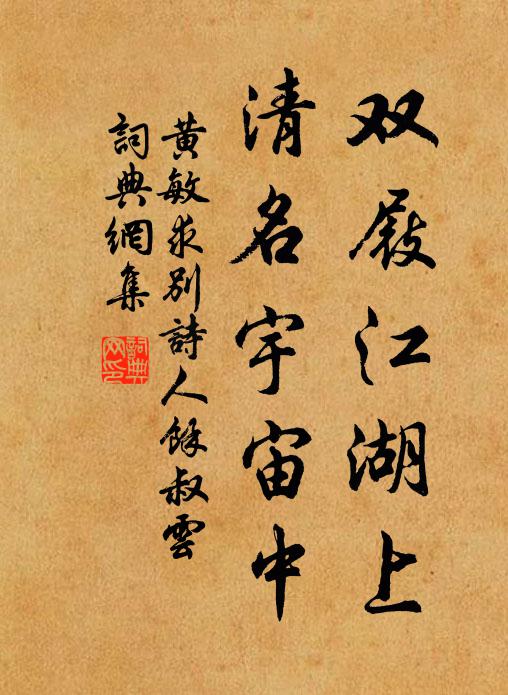 双屐江湖上
清名宇宙中
黄敏求别詩人餘叔雲
詞典網集
詞典網印